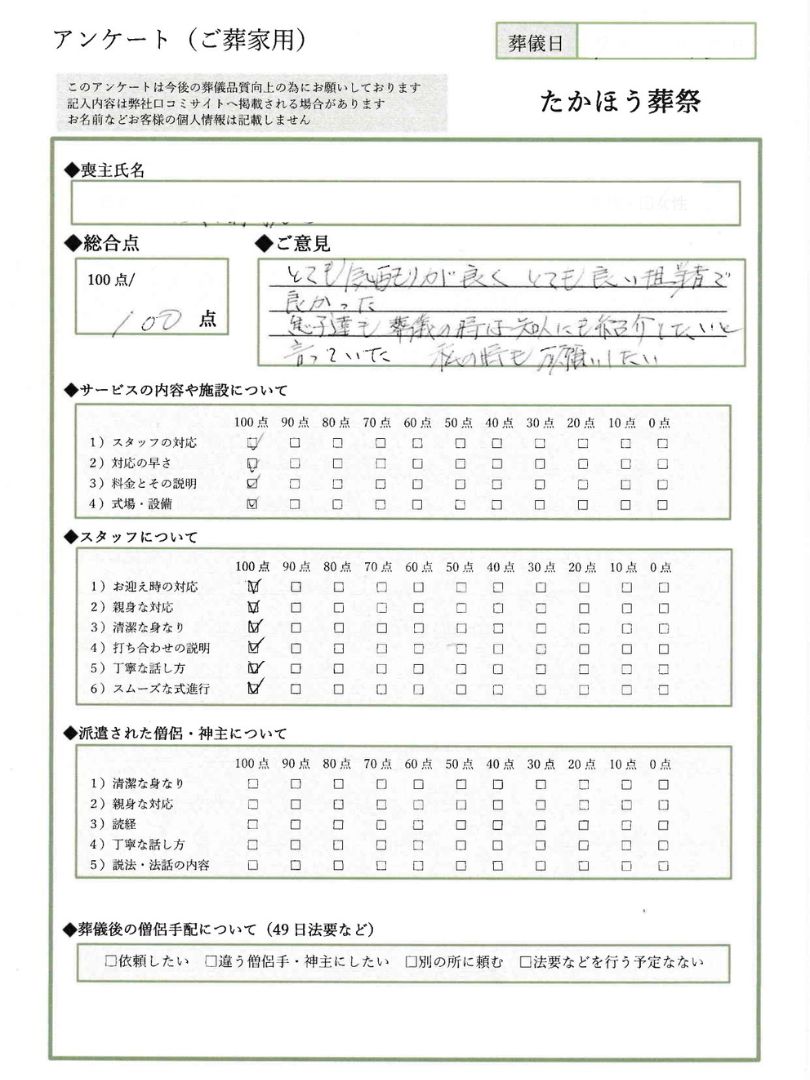 アンケート（ご葬家用）
葬儀日
このアンケートは今後の葬儀品質向上の為にお願いしております
記入内容は弊社口コミサイトへ掲載される場合があります
お名前などお客様の個人情報は記載しません
たかほう葬祭
◆喪主氏名
◆総合点
100点/
100 点
◆ご意見
とても気配りが良く とても良い担当者で
良かった
息子達も葬儀の時は知人にも紹介したいと
言っていた 私の時もお願いしたい
◆サービスの内容や施設について
100点 90点 80点 70点 60点 50点 40点 30点 20点 10点 0点
1）スタッフの対応 ☑ □ □ □ □ □ □ □ □ □ □
2）対応の早さ ☑ □ □ □ □ □ □ □ □ □ □
3）料金とその説明 ☑ □ □ □ □ □ □ □ □ □ □
4）式場・設備 ☑ □ □ □ □ □ □ □ □ □ □
◆スタッフについて
100点 90点 80点 70点 60点 50点 40点 30点 20点 10点 0点
1）お迎え時の対応 ☑ □ □ □ □ □ □ □ □ □ □
2）親身な対応 ☑ □ □ □ □ □ □ □ □ □ □
3）清潔な身なり ☑ □ □ □ □ □ □ □ □ □ □
4）打ち合わせの説明 ☑ □ □ □ □ □ □ □ □ □ □
5）丁寧な話し方 ☑ □ □ □ □ □ □ □ □ □ □
6）スムーズな式進行 ☑ □ □ □ □ □ □ □ □ □ □
◆派遣された僧侶・神主について
100点 90点 80点 70点 60点 50点 40点 30点 20点 10点 0点
1）清潔な身なり □ □ □ □ □ □ □ □ □ □ □
2）親身な対応 □ □ □ □ □ □ □ □ □ □ □
3）読経 □ □ □ □ □ □ □ □ □ □ □
4）丁寧な話し方 □ □ □ □ □ □ □ □ □ □ □
5）説法・法話の内容 □ □ □ □ □ □ □ □ □ □ □
◆葬儀後の僧侶手配について（49日法要など）
□依頼したい □違う僧侶手・神主にしたい □別の所に頼む □法要などを行う予定なない